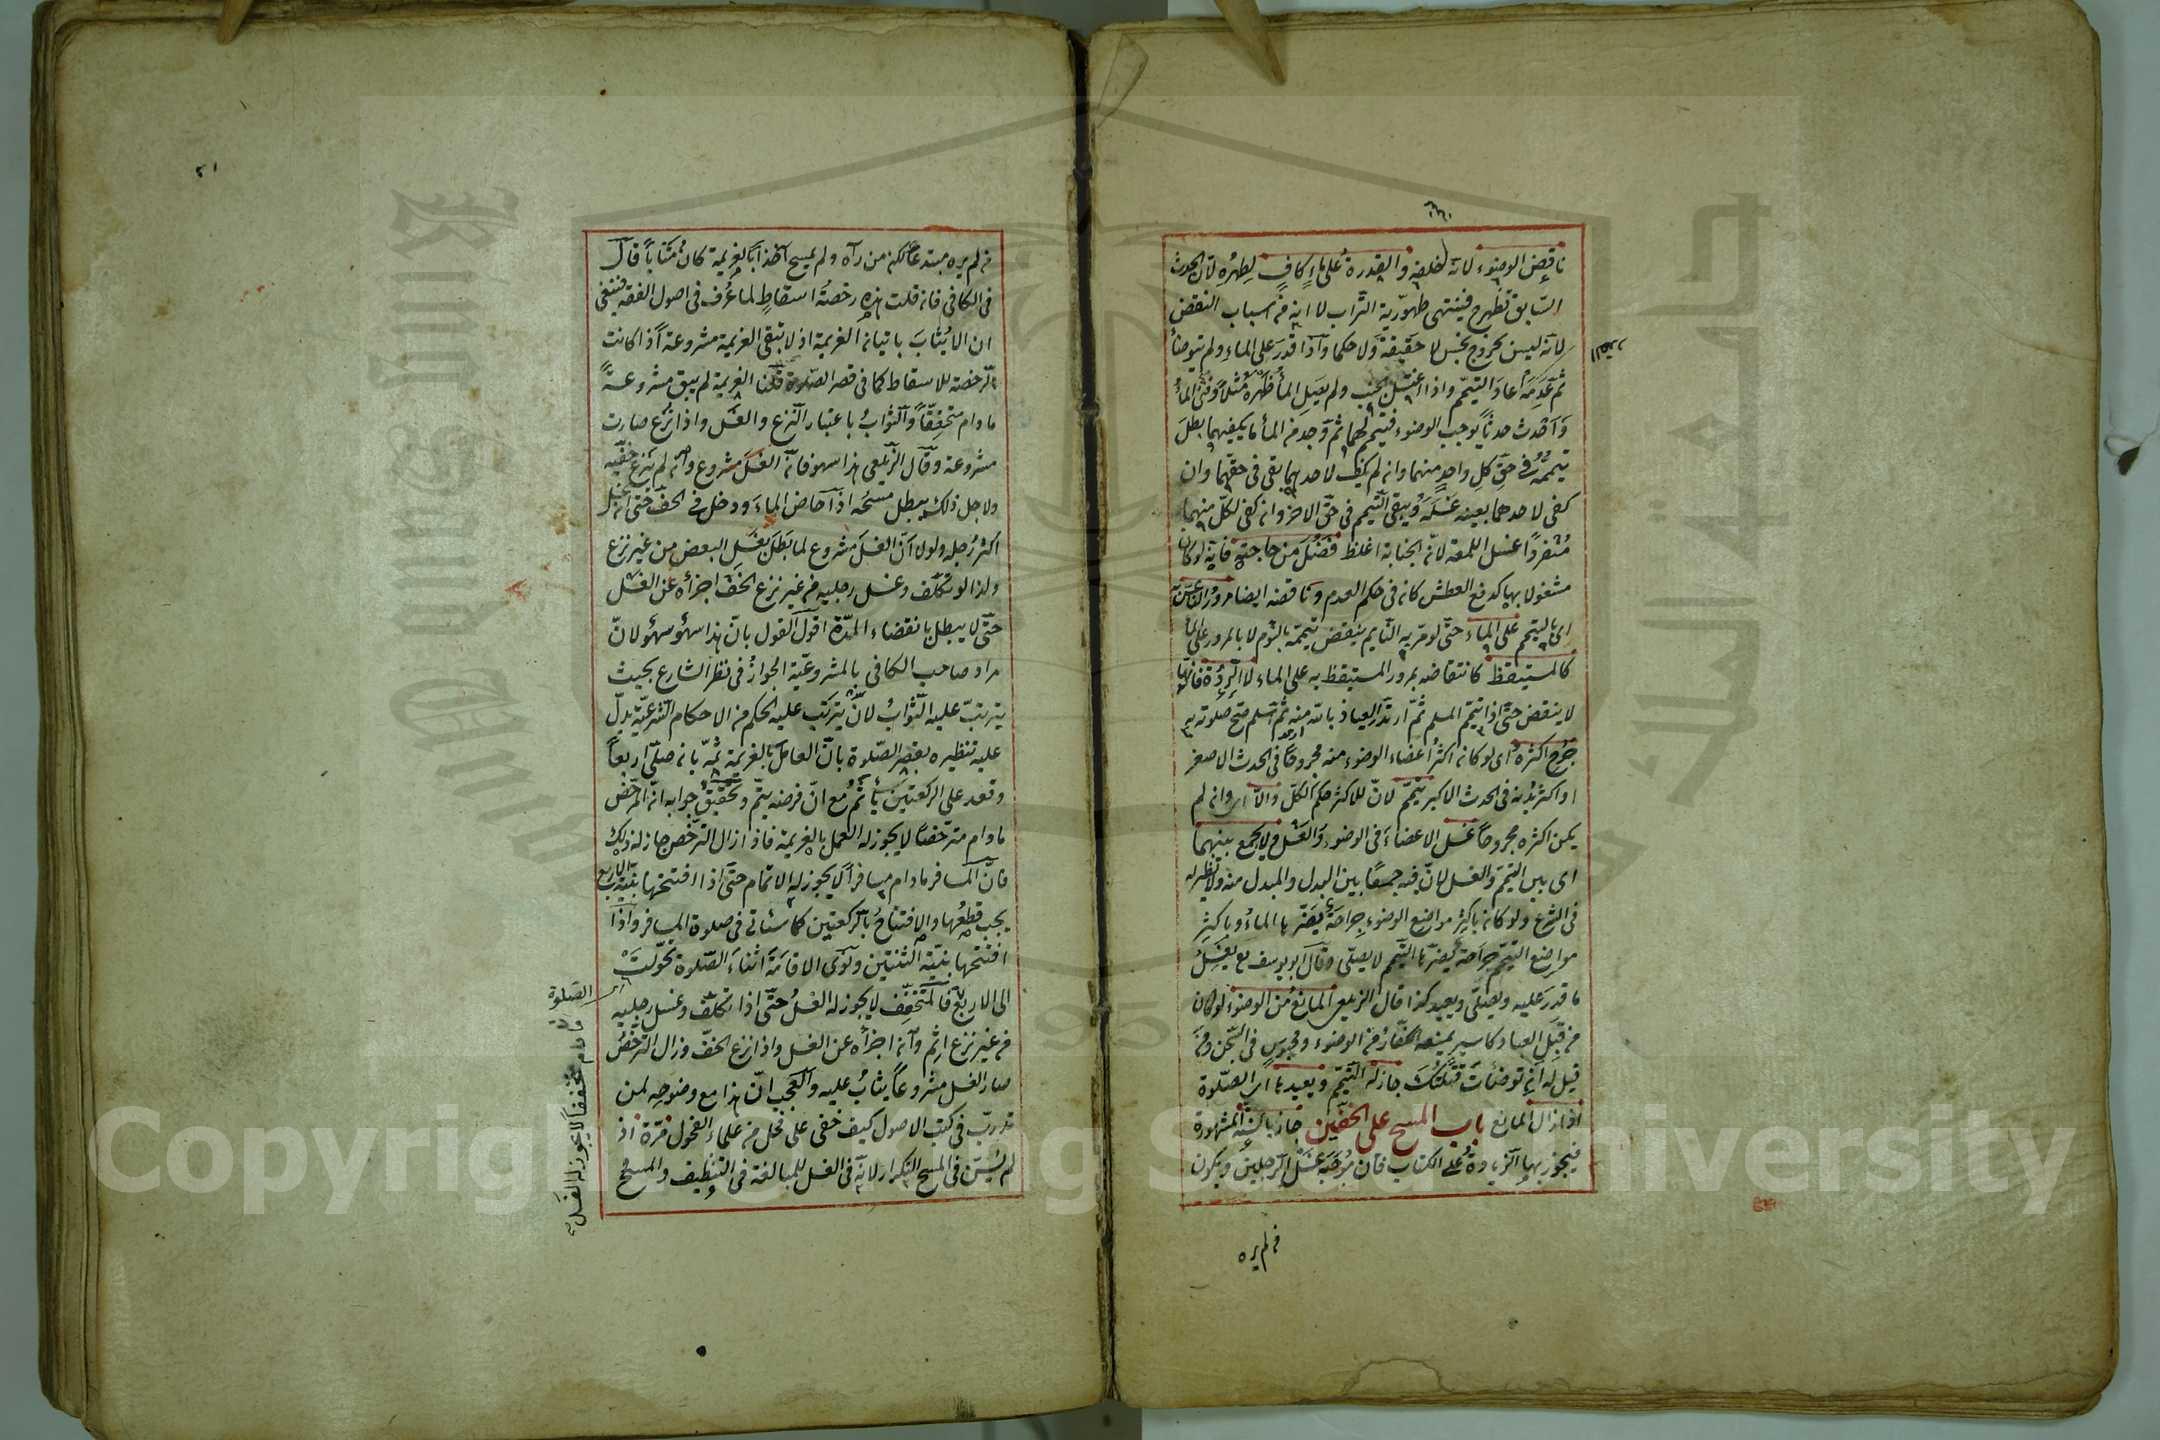 ناقض الوضوء لانه خلفه والقدرة على ماء كاف لطهره لان الحدث
السابق يظهر ح فينتهى طهورية التراب لا انه من اسباب النقض
لانه ليس بخروج نجس لا حقيقة ولا حكما واذا قدر على الماء ولم يتوضأ
ثم عدمه اعاد التيمم واذا اغتسل الجنب ولم يصل الماء ظهره مثلا وفنى الماء
واحدث حدثا يوجب الوضوء فتيمم لهما ثم وجد من الماء ما يكفيهما بطل
تيممه في حق كل واحد منهما وان لم يكف لاحدهما بقى فى حقهما وان
كفى لاحدهما بعينه غسله ويبقى التيمم فى حق الاخر وان كفى لكل منهما
منفردا غسل اللمعة لان الجنابة اغلظ فضل من حاجته فانه لو كان
مشغولا بها كدفع العطش كان فى حكم العدم وناقضه ايضا مرور الناعس
اى بالتيمم على الماء حتى لو مر به النايم ينقض تيممه بالنوم لا بالمرور على الماء
كالمستيقظ كانتقاضه بمرور المستيقظ به على الماء لا الردة فانها
لا ينقض حتى اذا تيمم المسلم ثم ارتد العياذ بالله منه ثم اسلم صح صلوته به
جرح اكثره اى لو كان اكثر اعضاء الوضوء منه مجروحا فى الحدث الاصغر
او اكثر بدنه فى الحدث الاكبر تيمم لان للاكثر حكم الكل والا اى وان لم
يكن اكثره مجروحا غسل الاعضاء فى الوضوء والغسل ولا يجمع بينهما
اى بين التيمم والغسل لان فيه جمعا بين البدل والمبدل منه ولا نظير له
فى الشرع ولو كان باكثر مواضع الوضوء جراحة يضر بها الماء وباكثر
مواضع التيمم جراحة يضر بها التيمم لا يصلى وقال ابو يوسف يغسل
ما قدر عليه ويصلى ويعيد كذا قال الزيلعى المانع من الوضوء لو كان
من قبل العباد كاسير يمنعه الكفار من الوضوء ومحبوس فى السجن ومن
قيل له ان توضأت قتلتك جاز له التيمم ويعيد بها اى الصلوة
اذا زال المانع باب المسح على الخفين جاز بالسنة المشهورة
فيجوز بها الزيادة على الكتاب فان موجبه غسل الرجلين ويكون
من لم يره
٢١
من لم يره مبتدعا لكن من رآه ولم يمسح آخذا بالعزيمة كان مثابا قال
فى الكافى فان قلت هذه رخصة اسقاط لما عرف فى اصول الفقه فينبغى
ان لا يثاب باتيان العزيمة اذ لا تبقى العزيمة مشروعة اذا كانت
الرخصة للاسقاط كما فى قصر الصلوة قلنا العزيمة لم يبق مشروعة
ما دام متخففا والثواب باعتبار النزع والغسل واذا نزع صارت
مشروعة وقال الزيلعى هذا سهو فان الغسل مشروع وان لم ينزع خفيه
ولاجل ذلك يبطل مسحه اذا خاض الماء ودخل فى الخف حتى انغسل
اكثر رجله ولولا ان الغسل مشروع لما بطل بغسل البعض من غير نزع
ولذا لو تكلف وغسل رجليه من غير نزع الخف اجزأه عن الغسل
حتى لا يبطل بانقضاء المدة اقول القول بان هذا سهو سهو لان
مراد صاحب الكافى بالمشروعية الجواز فى نظر الشارع بحيث
يترتب عليه الثواب لان يترتب عليه الحكم من الاحكام الشرعية يدل
عليه تنظيره بقصر الصلوة بان العامل بالعزيمة ثمه بان صلى اربعا
وقعد على الركعتين يأثم مع ان فرضه يتم وتحقيق جوابه ان المترخص
ما دام مترخصا لا يجوز له العمل بالعزيمة فاذا زال الترخص جاز له ذلك
فان المسافر ما دام مسافرا لا يجوز له الاتمام حتى اذا افتتحها بنية الاربع
يجب قطعها والافتتاح بالركعتين كما سيأتى فى صلوة المسافر واذا
افتتحها بنية الثنتين ونوى الاقامة اثناء الصلوة تحولت
الى الاربع فالمتخفف لا يجوز له الغسل حتى اذا تكلف وغسل رجليه
من غير نزع اثم وان اجزأه عن الغسل واذا نزع الخف وزال الترخص
صار الغسل مشروعا يثاب عليه والعجب ان هذا مع وضوحه لمن
تدرب فى كتب الاصول كيف خفى على فحل من علماء الفحول مرة اذ
لم يسن فى المسح التكرار لانه فى الغسل للمبالغة فى التنظيف والمسح
الصلوة
ما دام متخففا لا يجوز له الغسل